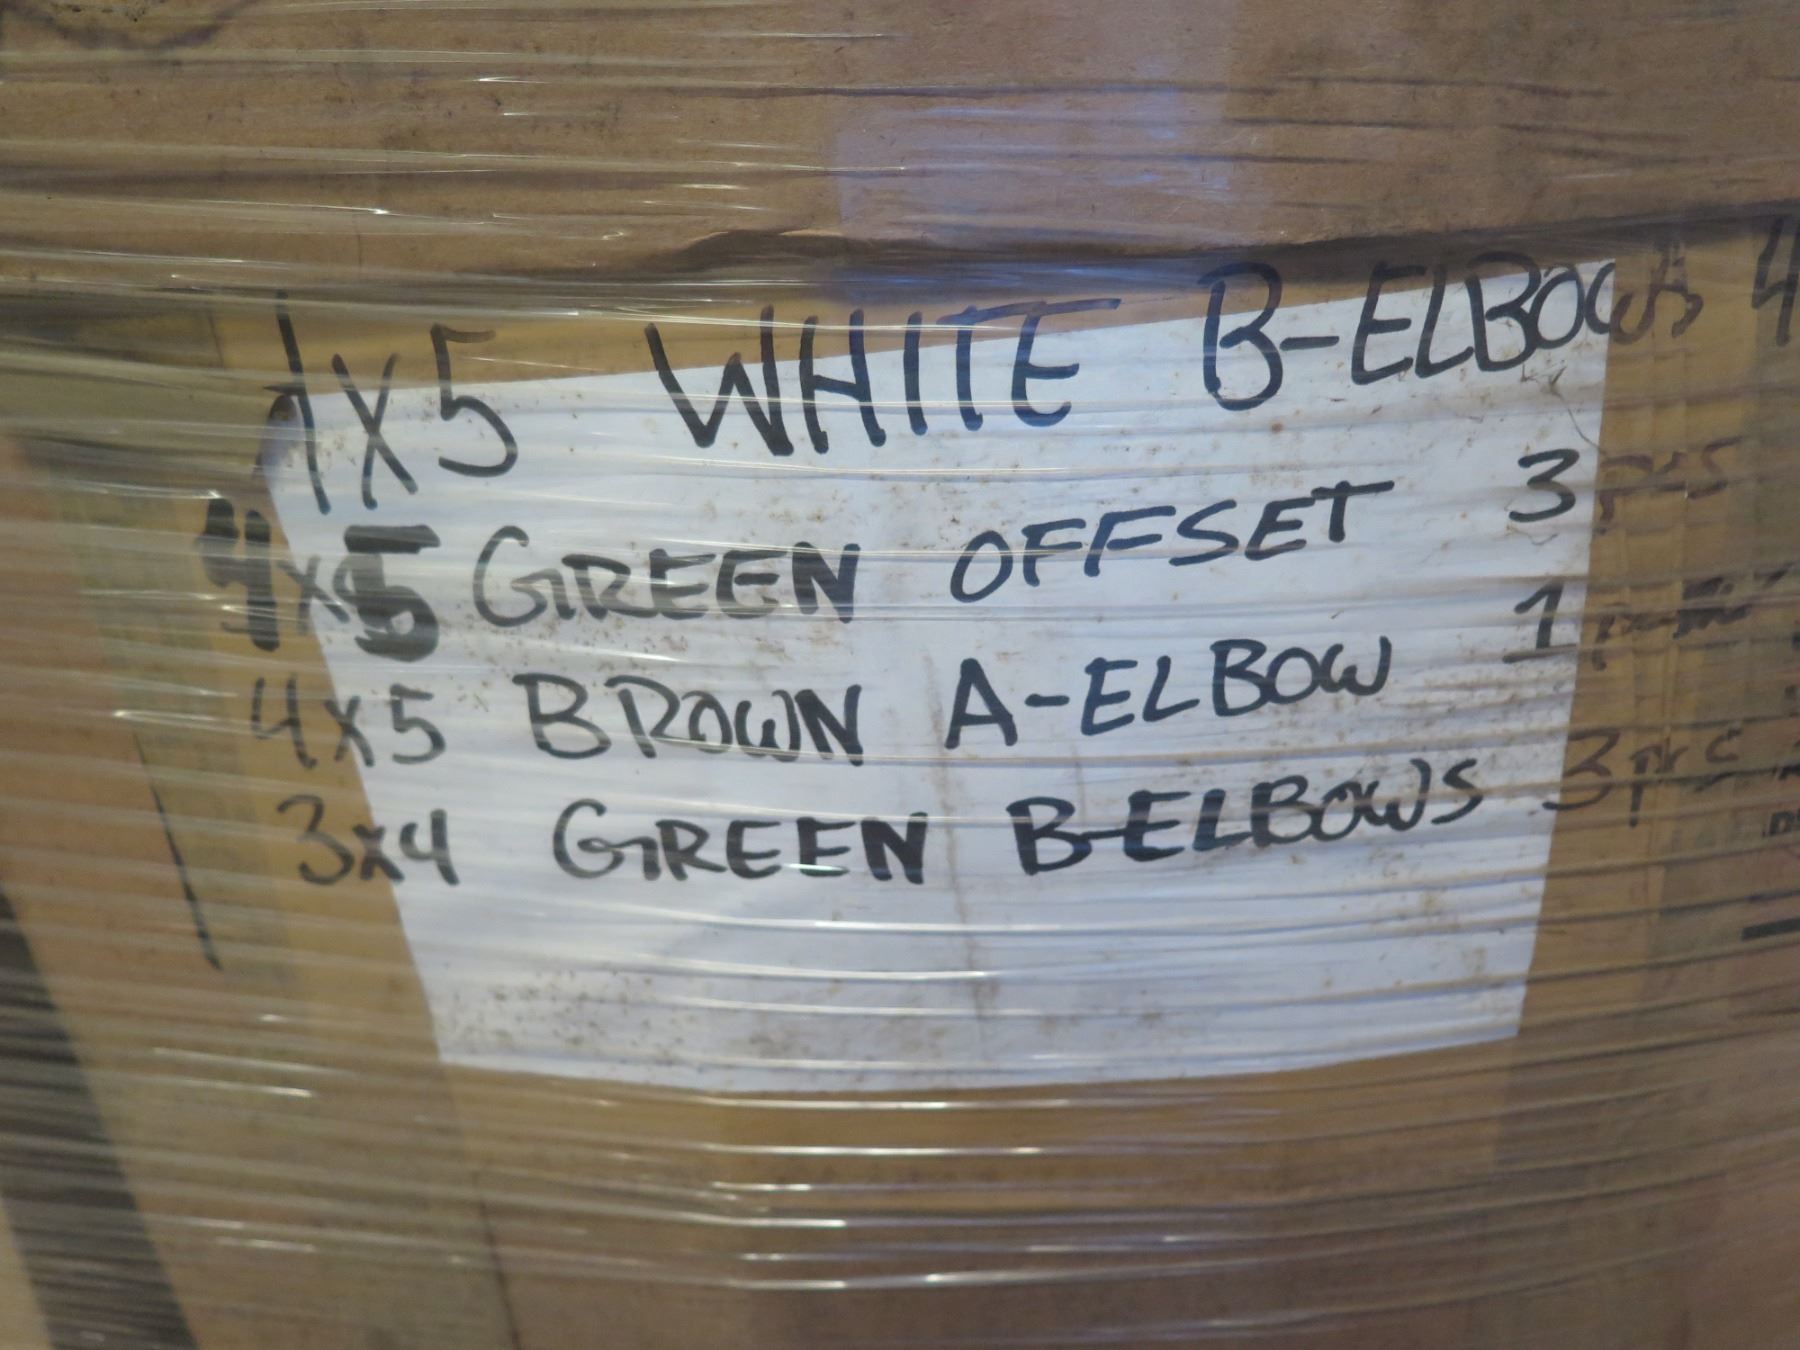 4x5 WHITE B-ELBOWS 4
4x5 GREEN OFFSET 3 pcs
4x5 BROWN A-ELBOW 1
3x4 GREEN B-ELBOWS 3 pcs